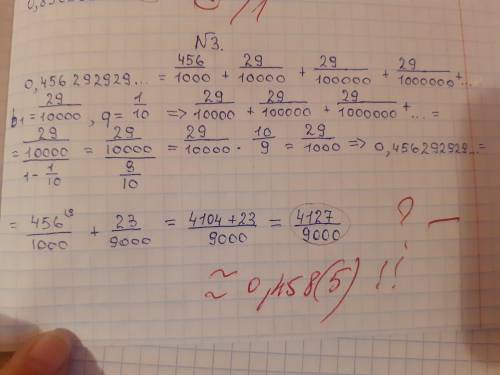 N3.
0,456292929... = 456/1000 + 29/10000 + 29/100000 + 29/1000000 +...
b₁ = 29/10000, q = 1/10 => 29/10000 + 29/100000 + 29/1000000 +... =
= (29/10000)/(1 - 1/10) = (29/10000)/(9/10) = 29/10000 · 10/9 = 29/1000 => 0,456292929... =
= 456⁹/1000 + 23/9000 = (4104+23)/9000 = 4127/9000 ? —
≈ 0,458(5) !!